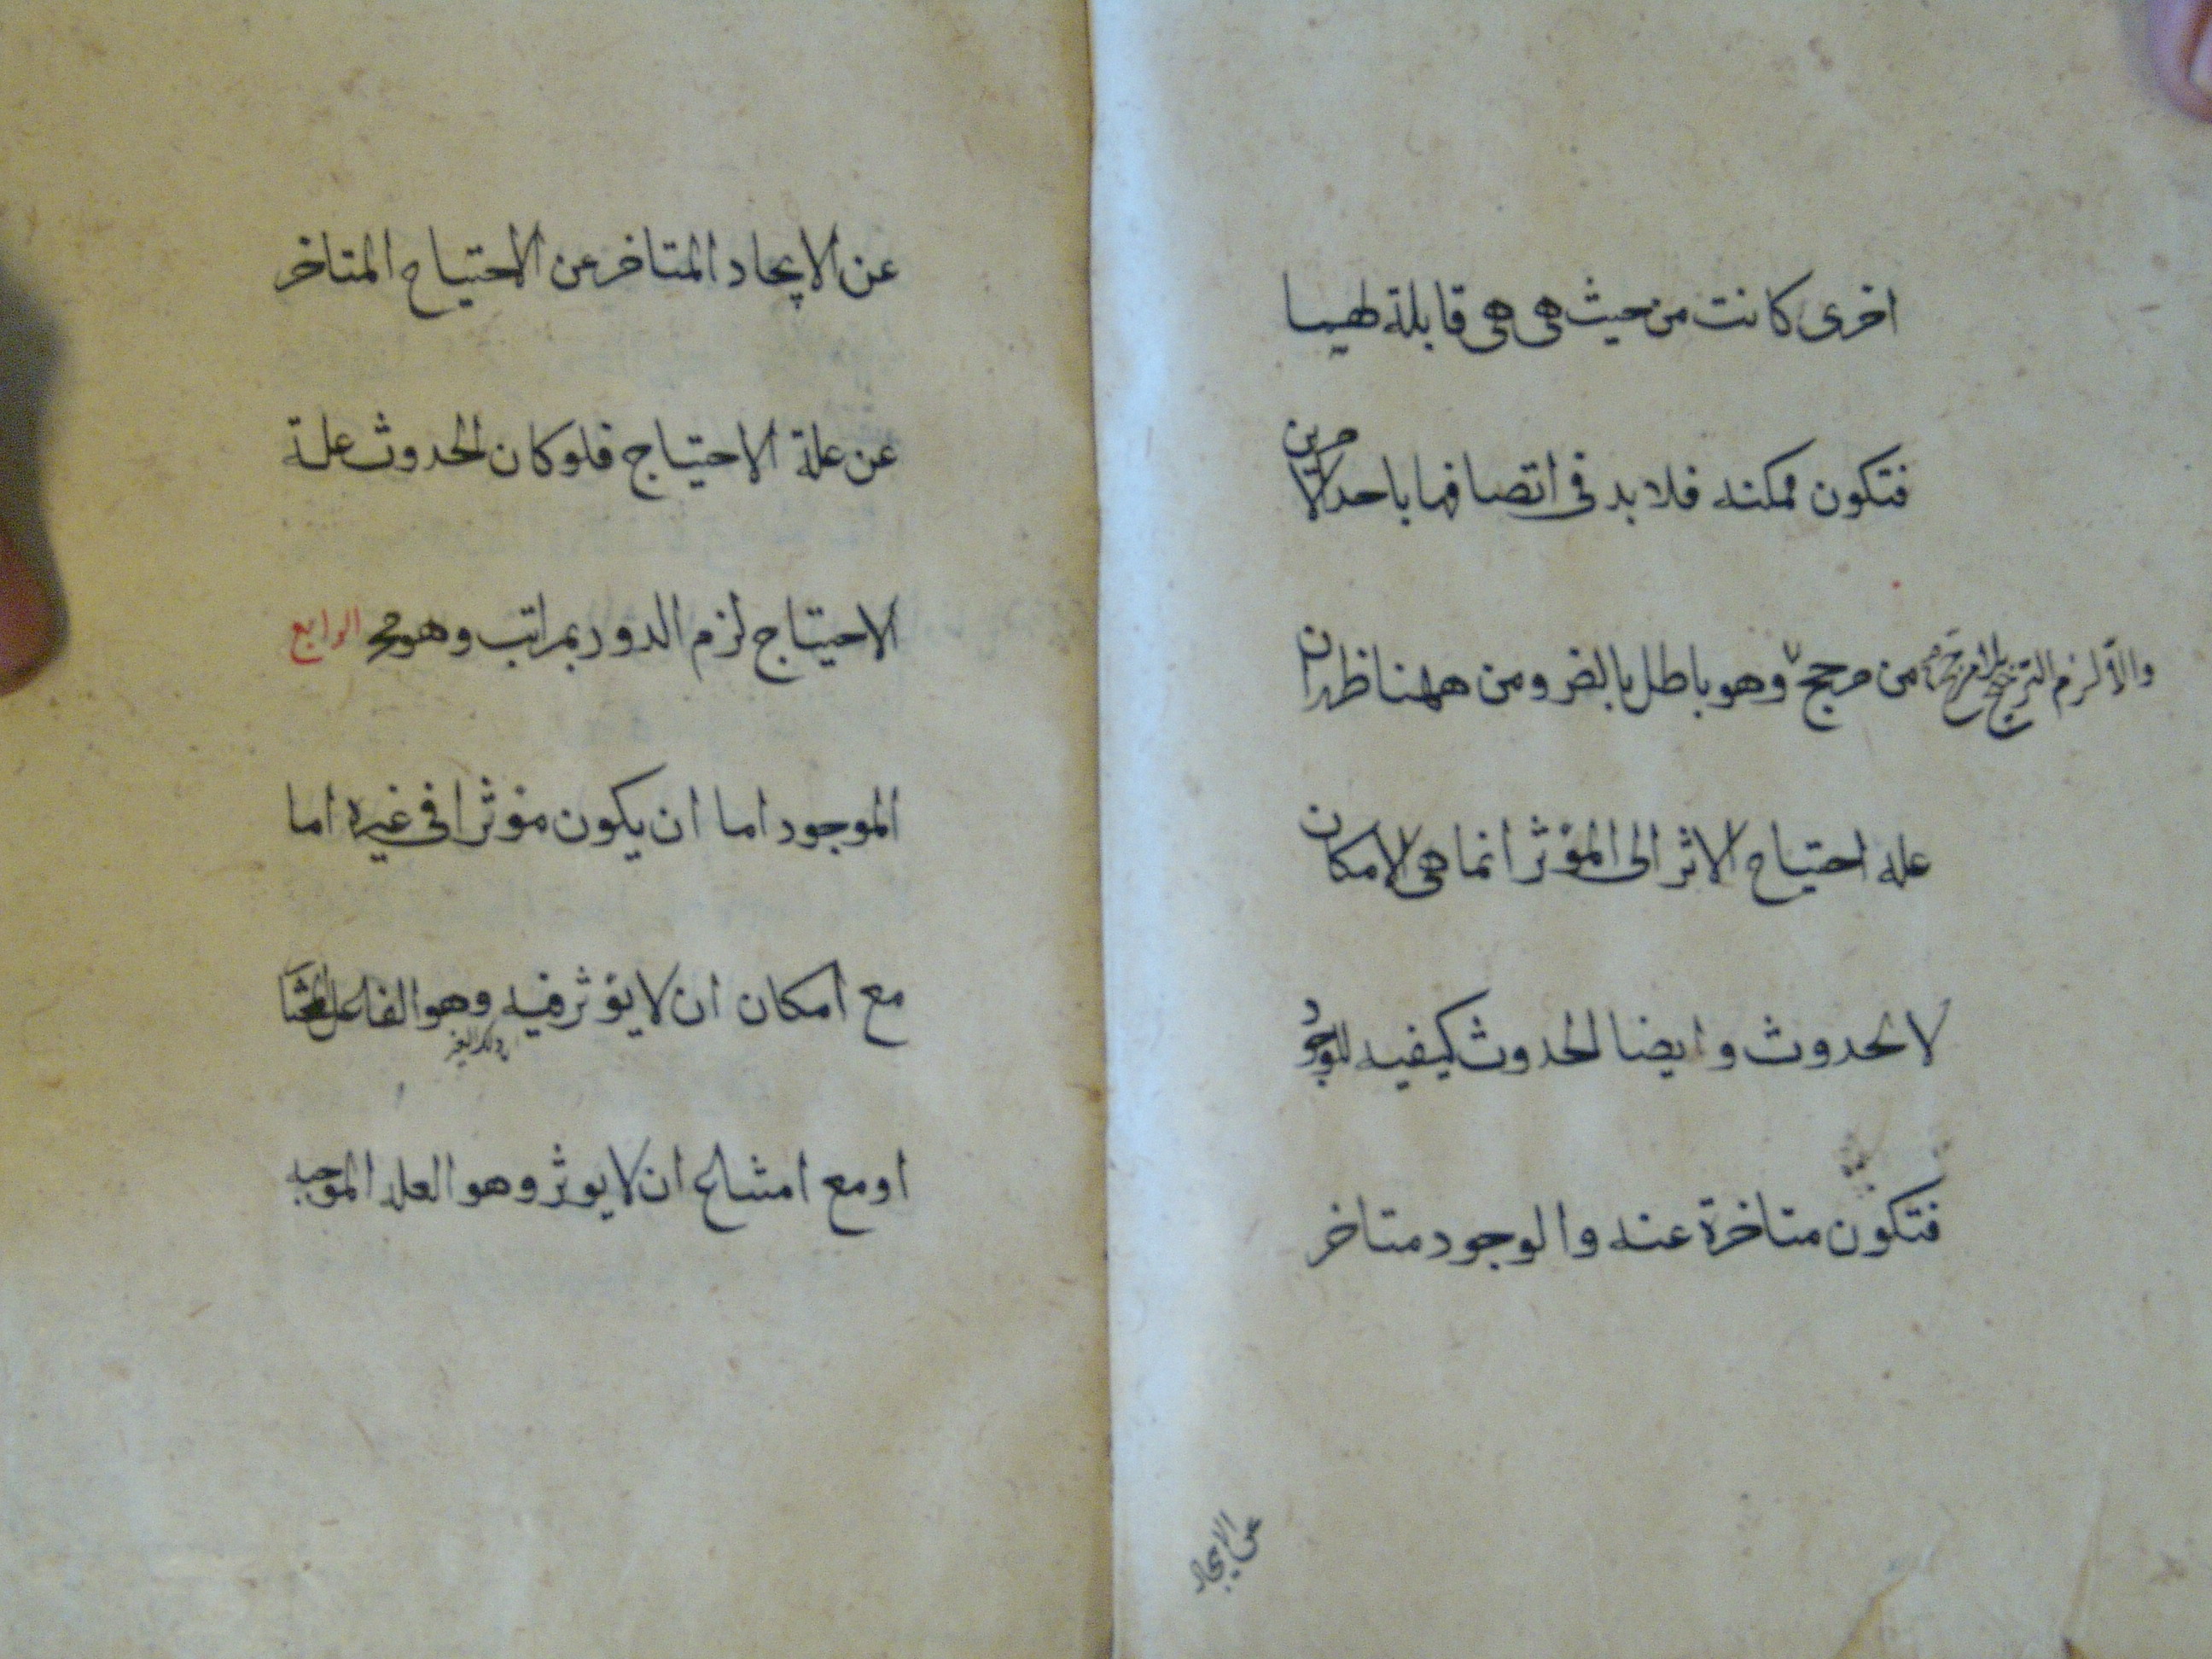 اخرى كانت من حيث هى هى قابلة لهيما
فتكون ممكنه فلا بد فى اتصافها باحد الامرين
من مرجح وهو باطل بالضر ومن ههنا ظهر ان
والا لزم الترجيح بلا مرجح
عله احتياج الاثر الى المؤثر انما هى الامكان
لا الحدوث وايضا الحدوث كيفيه للوجود
فتكون متاخرة عنه والوجود متاخر
عن الايجاد
عن الايجاد المتاخر عن الاحتياج المتاخر
عن علة الاحتياج فلو كان الحدوث علة
الاحتياج لزم الدور بمراتب وهو مح الرابع
الموجود اما ان يكون مؤثرا فى غيره اما
مع امكان ان لا يؤثر فيه وهو الفاعل المختا
او مع امتناع ان لا يوثر وهو العله الموجبه